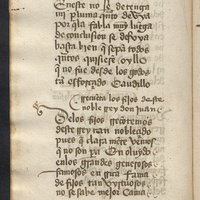 En este no se detenga
mi pluma quito de ya
por que fabla muy luega
de conclusion se desvya
basta bien que sepa todos
quantos quisiere oyllo
que no fue desde los godos
tā esforçado Caudillo
Recuēta los fijos deste
noble rey don juan
De los fijos recōtemos
deste rey tan noblecido
pues que claramēte vemos
que no son pa en oluydo
en los grandes generosos
famosos en gētil fama
de fijos tan virtuosos
no se sabe mejor Cama